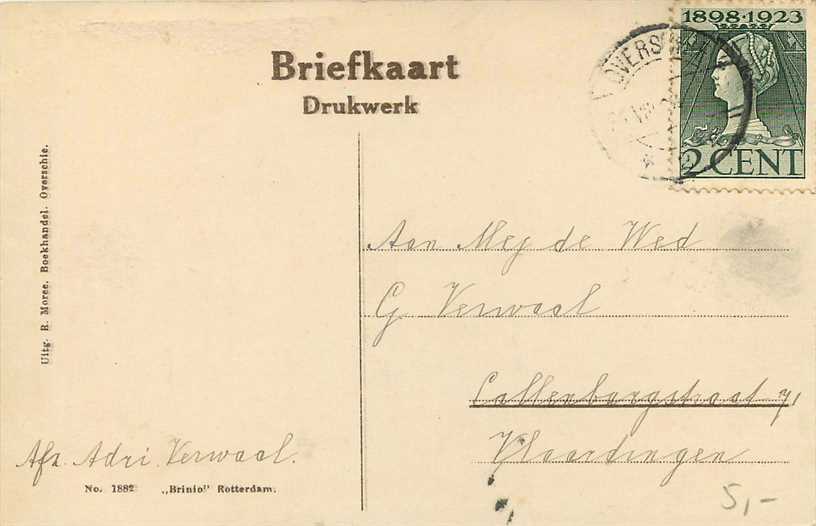 Briefkaart
Drukwerk
1898·1923
2 CENT
OVERSCHIE
Uitg. R. Moree. Boekhandel. Overschie.
Aan Mej de Wed
G Verwaal
Callenburgstraat 71
Vlaardingen
Afz. Adri. Verwaal.
No. 1882 „Brinio" Rotterdam.
5,-